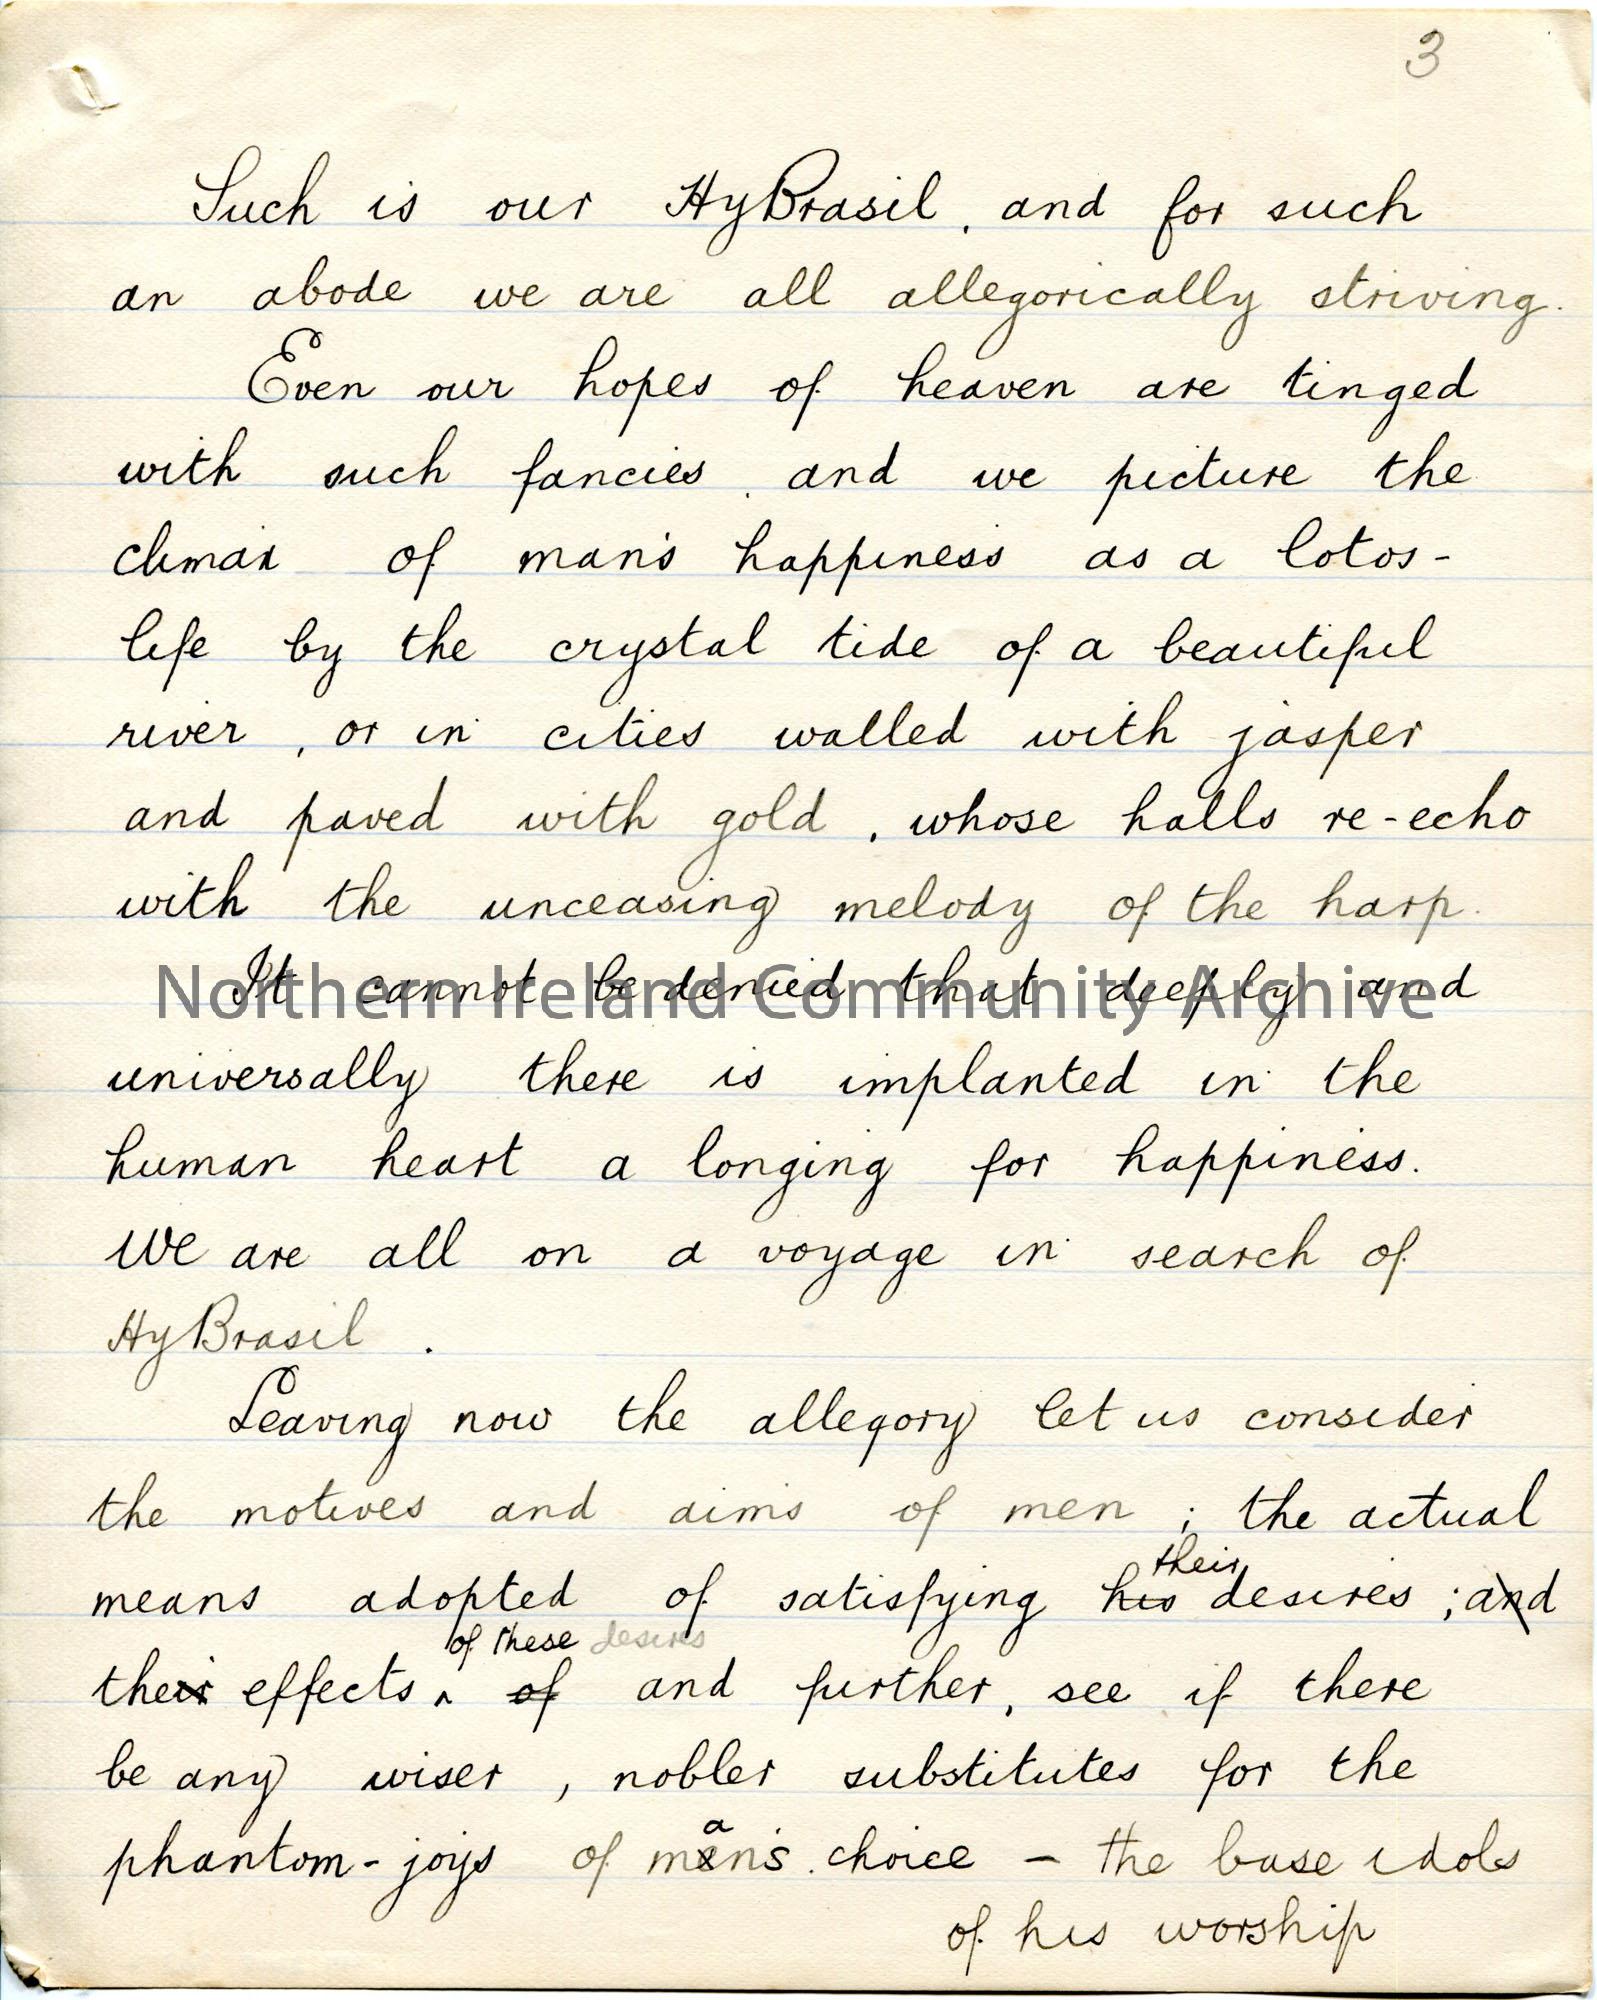 3
Such is our HyBrasil, and for such
an abode we are all allegorically striving.
Even our hopes of heaven are tinged
with such fancies, and we picture the
climax of man's happiness as a lotos-
life by the crystal tide of a beautiful
river, or in cities walled with jasper
and paved with gold, whose halls re-echo
with the unceasing melody of the harp.
It cannot be denied that deeply and
Northern Ireland Community Archive
universally there is implanted in the
human heart a longing for happiness.
We are all on a voyage in search of
HyBrasil.
Leaving now the allegory let us consider
the motives and aims of men; the actual
their
means adopted of satisfying his desires; and
of these desires
their effects ‸ of and further, see if there
be any wiser, nobler substitutes for the
a
phantom-joys of men's choice - the base idols
of his worship